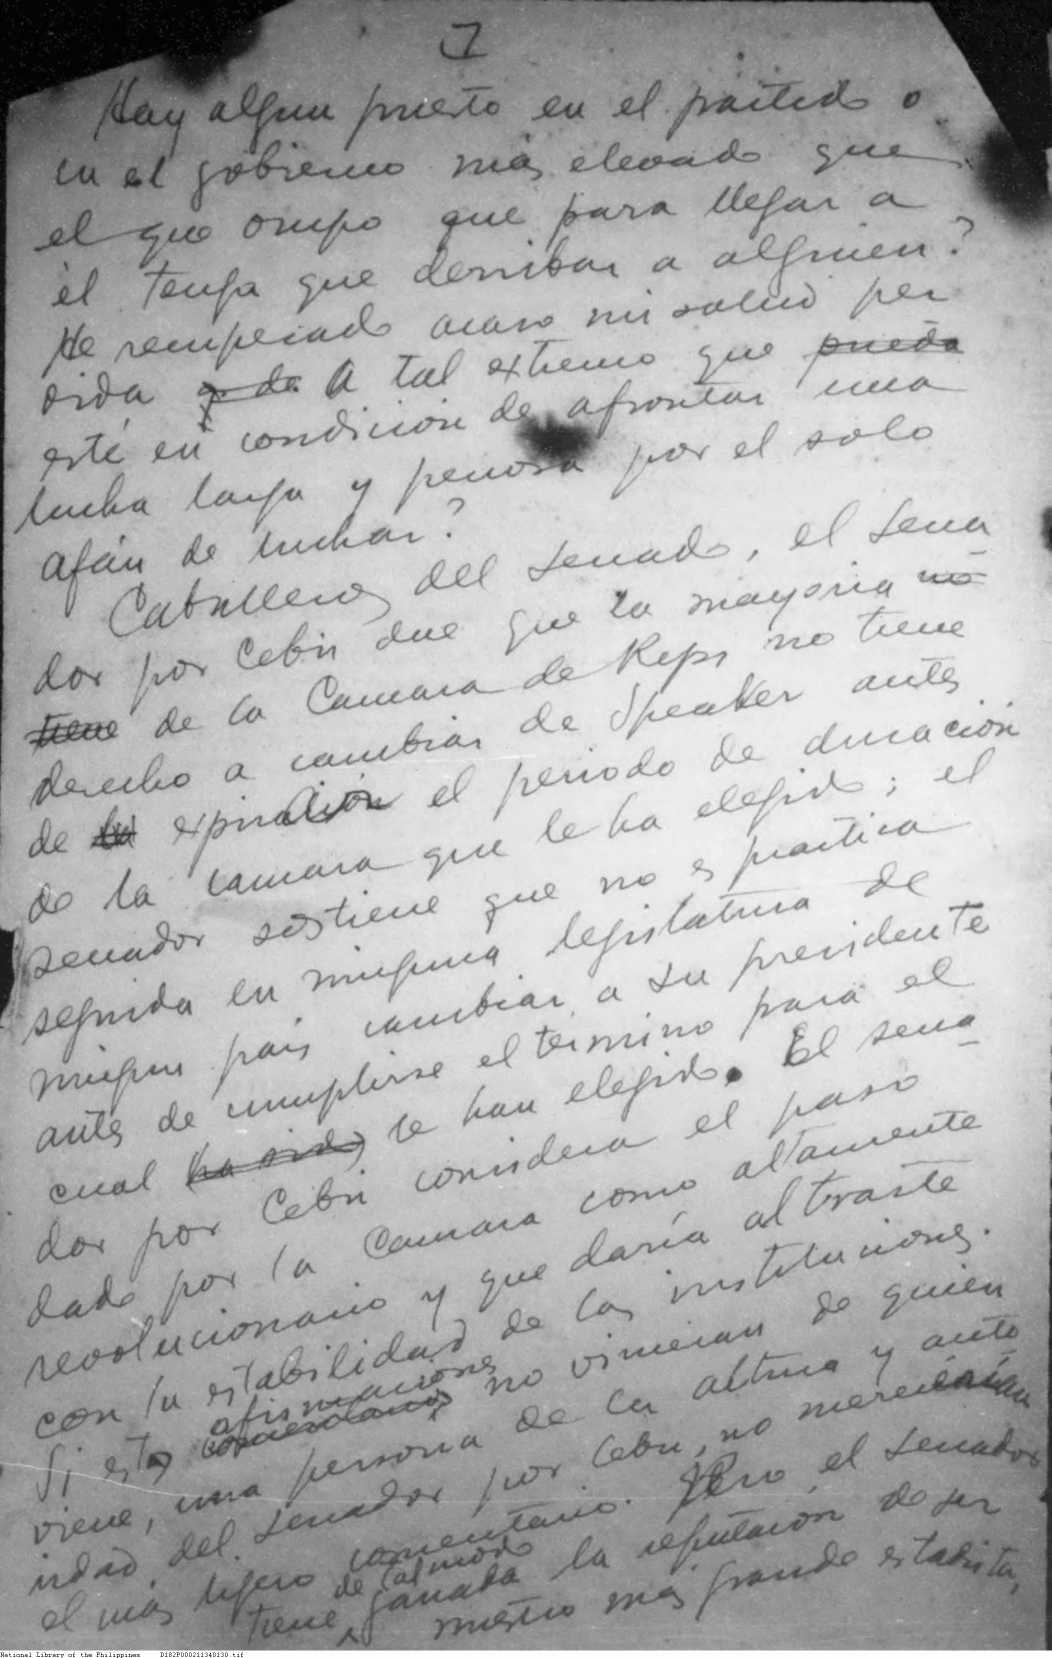 7
Hay algun puesto en el partido o
en el gobierno mas elevado que
el que ocupo que para llegar a
él tenga que derribar a alguien?
He recuperado acaso mi salud per
dida y de A tal extremo que pueda
esté en condición de afrontar una
lucha larga y penosa por el solo
afán de luchar?
Caballeros del Senado, el Sena
dor por Cebu dice que la mayoria no
tiene de la Camara de Reps no tiene
derecho a cambiar de Speaker antes
de la expiración el periodo de duración
de la camara que le ha elegido; el
senador sostiene que no es practica
seguida en ninguna legislatura de
ningun pais cambiar a su presidente
antes de cumplirse el termino para el
cual ha sido le han elegido. El sena
dor por Cebu considera el paso
dado por la Camara como altamente
revolucionario y que daría al traste
con la estabilidad de las instituciones.
afirmaciones
Si estas comentarios no vinieran de quien
viene, una persona de la altura y auto
ridad del senador por Cebu, no merecerian
el más ligero comentario. Pero el senador
de tal modo
tiene ganada la reputación de ser
nuestro mas grande estadista,
National Library of the Philippines D182P000211340130.tif